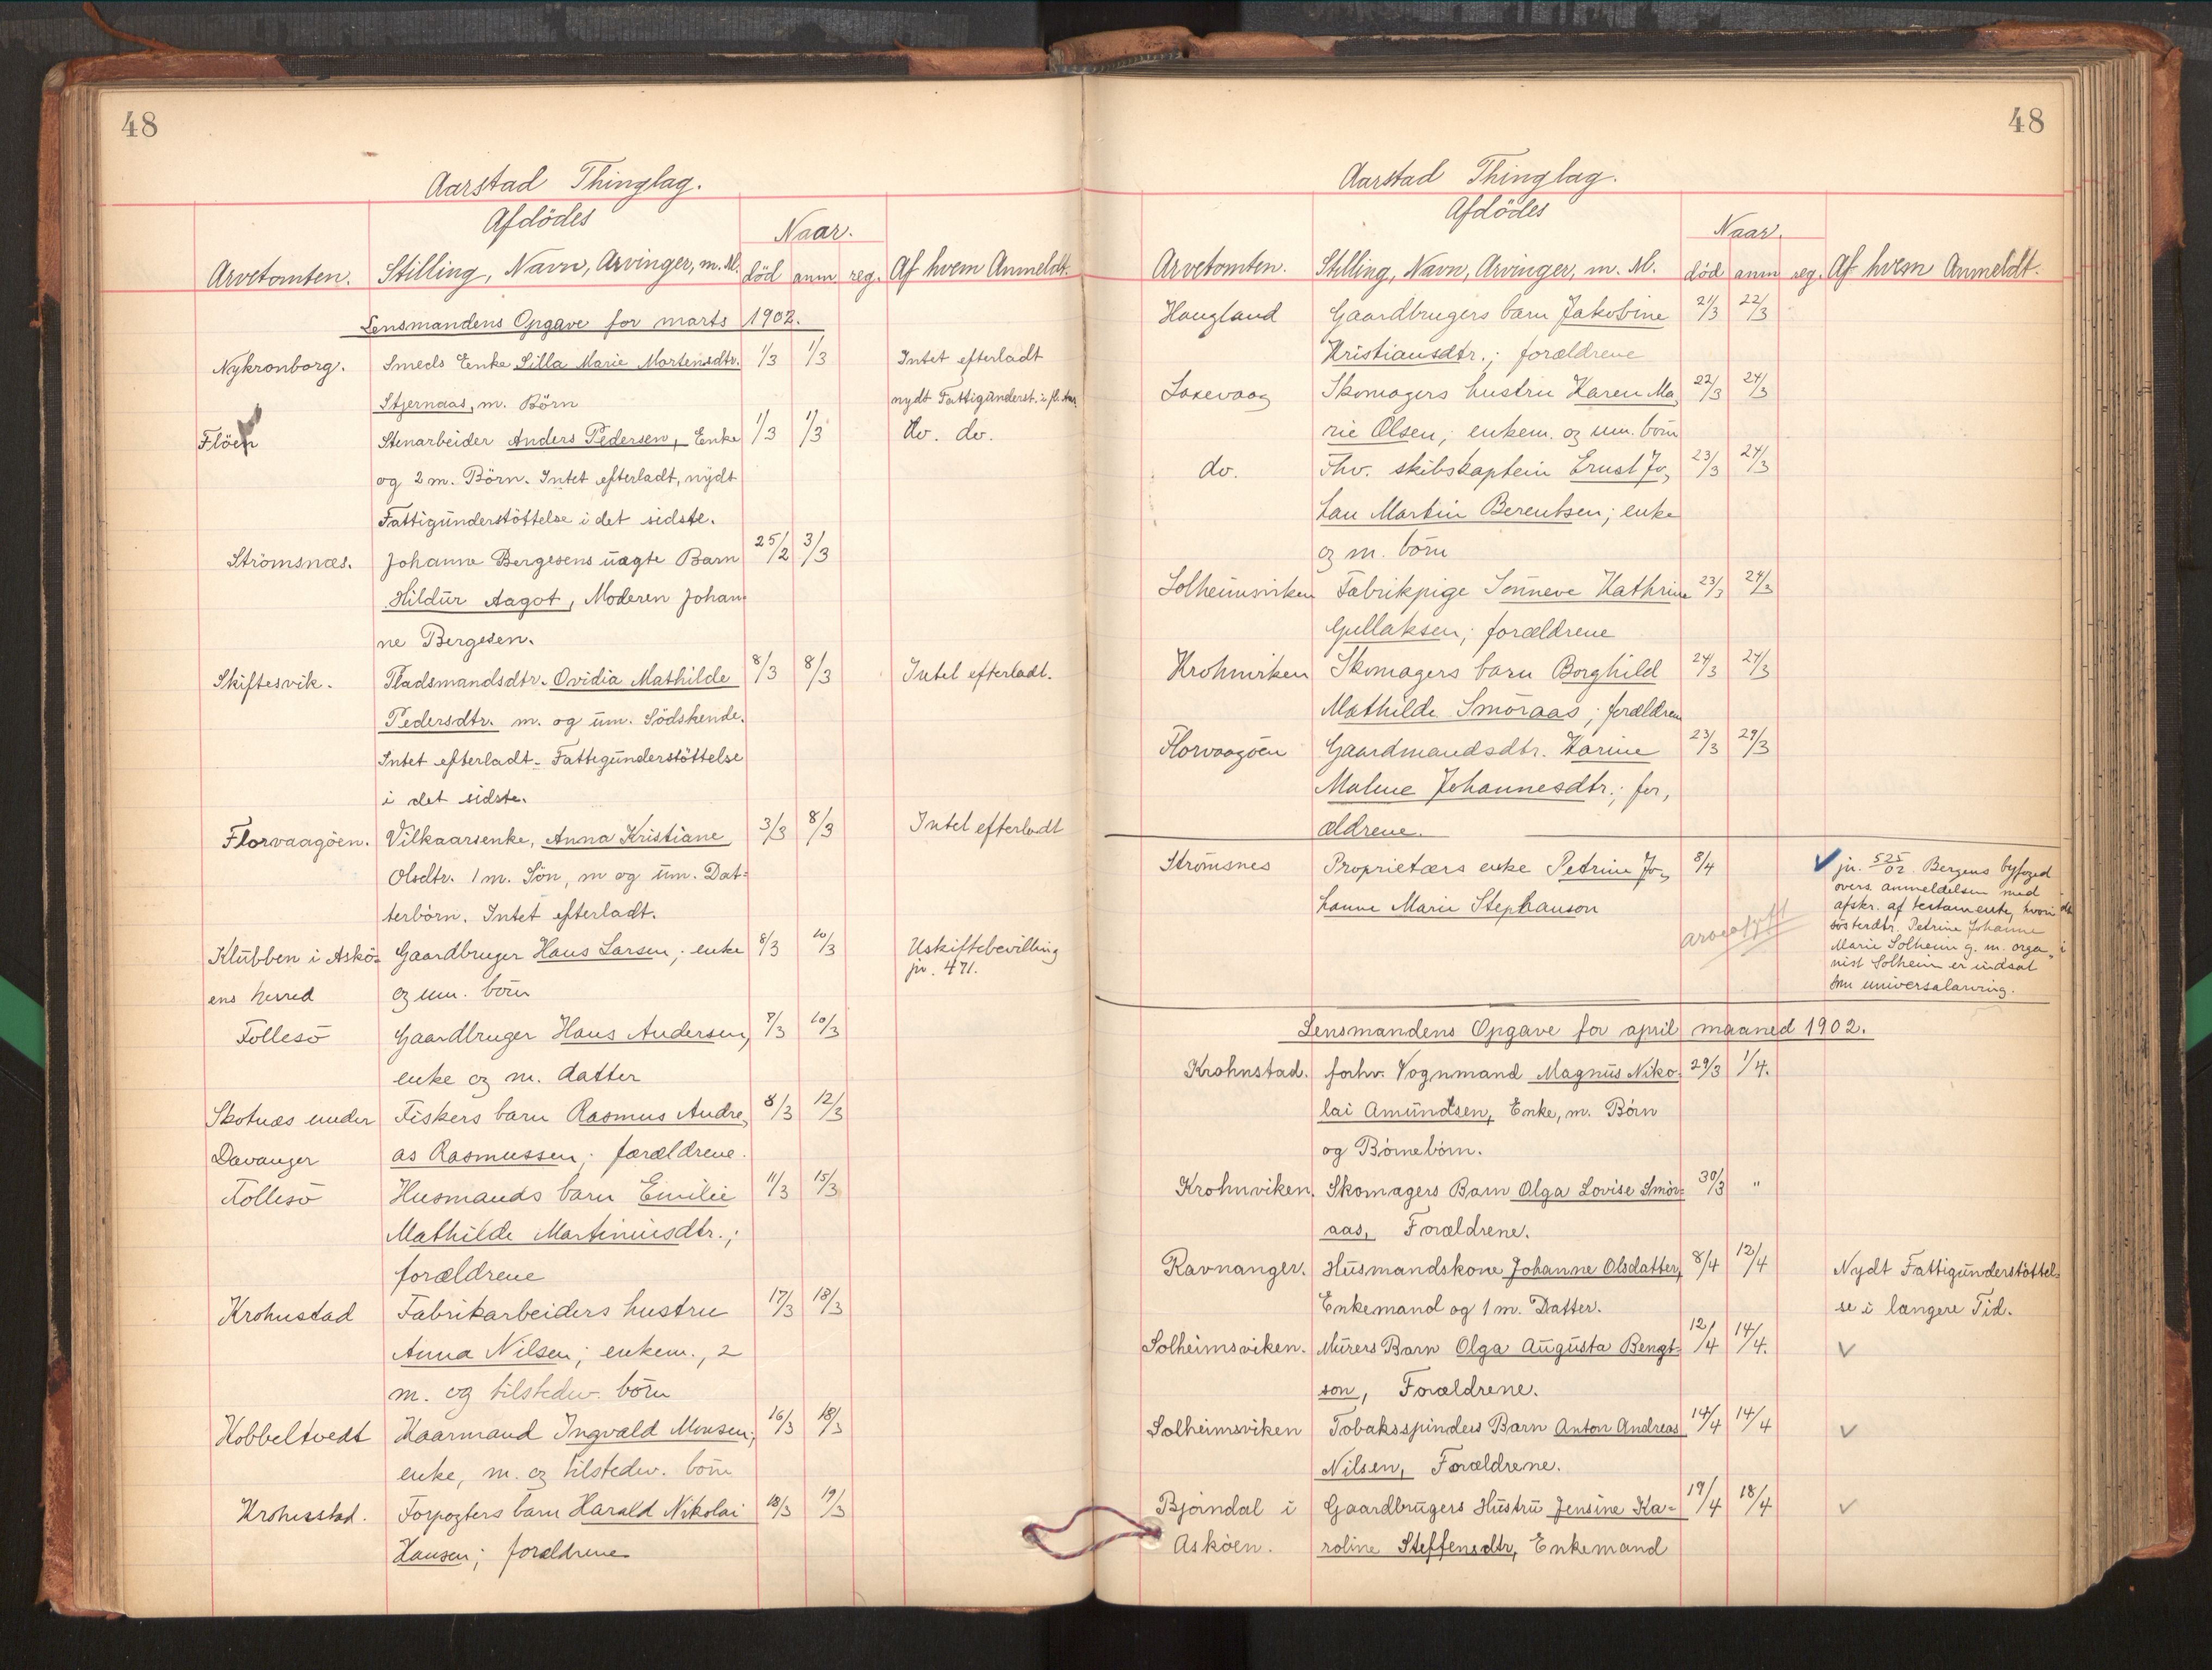 48
Aarstad Thinglag.
Afdödes
Naar.
Arvetomten. Stilling, Navn, Arvinger, m. M. död anm. reg. Af hvem Anmeldt.
Lensmandens Opgave for marts 1902.
Nykronborg. Smeds Enke Silla Marie Mortensdtr. 1/3 1/3 Intet efterladt
Stjernaas, m. Börn nydt Fattigünderst. i fl. Aar.
Flöen Stenarbeider Anders Pedersen, Enke 1/3 1/3 do. do.
og 2 m. Börn. Intet efterladt, nydt
Fattigünderstöttelse i det sidste.
Strömsnæs. Johanne Bergesens üægte Barn 25/2 3/3
Hildür Aagot, Moderen Johan-
ne Bergesen.
Skiftesvik. Pladsmandsdtr. Ovidia Mathilde 8/3 8/3 Intet efterladt.
Pedersdtr. m. og üm. Södskende.
Intet efterladt - Fattigünderstöttelse
i det sidste.
Florvaagöen. Vilkaarsenke, Anna Kristiane 3/3 8/3 Intet efterladt
Olsdtr. 1 m. Sön, m og üm. Dat-
terbörn. Intet efterladt.
Klübben i Askö- Gaardbruger Hans Larsen; enke 8/3 10/3 Uskiftebevilling
ens herred og um. börn jr. 471.
Follesö Gaardbruger Hans Andersen, 8/3 10/3
enke og m. datter
Skotnæs under Fiskers barn Rasmus Andre, 8/3 12/3
Davanger as Rasmussen; forældrene.
Follesö Husmands barn Emilie 11/3 15/3
Mathilde Martinusdtr.;
forældrene
Krohnstad Fabrikarbeiders hustru 17/3 18/3
Anna Nilsen; enkem., 2
m. og tilstedev. börn
Kobbeltvedt Kaarmand Ingvald Monsen; 16/3 18/3
enke, m. og tilstedev. börn
Krohnstad. Forpagters barn Harald Nikolai 18/3 19/3
Hansen; forældrene
48
Aarstad Thinglag.
Afdödes
Naar.
Arvetomten. Stilling, Navn, Arvinger, m. M. död anm reg. Af hvem Anmeldt.
Haugland Gaardbrugers barn Jakobine 21/3 22/3
Kristiansdtr.; forældrene
Laxevaag Skomagers hustru Karen Ma, 22/3 24/3
rie Olsen; enkem. og um. börn
do. Fhv. skibskaptein Ernst Jo, 23/3 24/3
han Martin Berentsen; enke
og m. börn
Solheimsviken Fabrikpige Sönneve Kathrine 23/3 24/3
Gullaksen; forældrene
Krohnviken Skomagers barn Borghild 24/3 24/3
Mathilde Smöraas; forældrene
Florvaagöen Gaardmandsdtr. Karine 23/3 29/3
Malene Johannesdtr.; for,
ældrene.
Strömsnes Proprietærs enke Petrine Jo, 8/4 jr. 525/02 Bergens byfoged
hanne Marie Stephanson overs. anmeldelsen med
afskr. af testamente, hvori
arveafgift
sösterdtr. Petrine Johanne
Marie Solheim g. m. orga,
nist Solheim er indsat
som universalarving.
Lensmandens Opgave for april maaned 1902.
Krohnstad. forhv. Vognmand Magnüs Niko- 29/3 1/4.
lai Amündsen, Enke, m. Börn
og Börnebörn.
Krohnviken. Skomagers Barn Olga Lovise Smör- 30/3 "
aas, Forældrene.
Ravnanger. Hüsmandskone Johanne Olsdatter, 8/4 12/4 Nydt Fattigünderstöttel-
Enkemand og 1 m. Datter. se i længere Tid.
Solheimsviken. Mürers Barn Olga Aügüsta Bengt- 12/4 14/4. v
son, Forældrene.
Solheimsviken Tobaksspinders Barn Anton Andreas 14/4 14/4 v
Nilsen, Forældrene.
Bjöndal i Gaardbrügers Hüstrü Jensine Ka- 17/4 18/4 v
Asköen. roline Steffensdtr, Enkemand